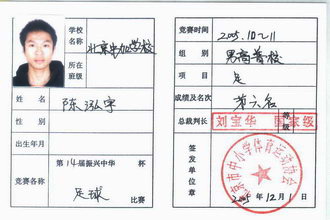 学校名称 北京中加学校
所在班级
姓名 陈泓宇
性别
出生年月
竞赛名称 第14届振兴中华 杯
足球 比赛
竞赛时间 2005.10~11
组别 男高普校
项目 足
成绩及名次 第六名
总裁判长 刘宝华 等级 国家级
签发单位章 北京市中小学体育运动协会
2005年12月1日